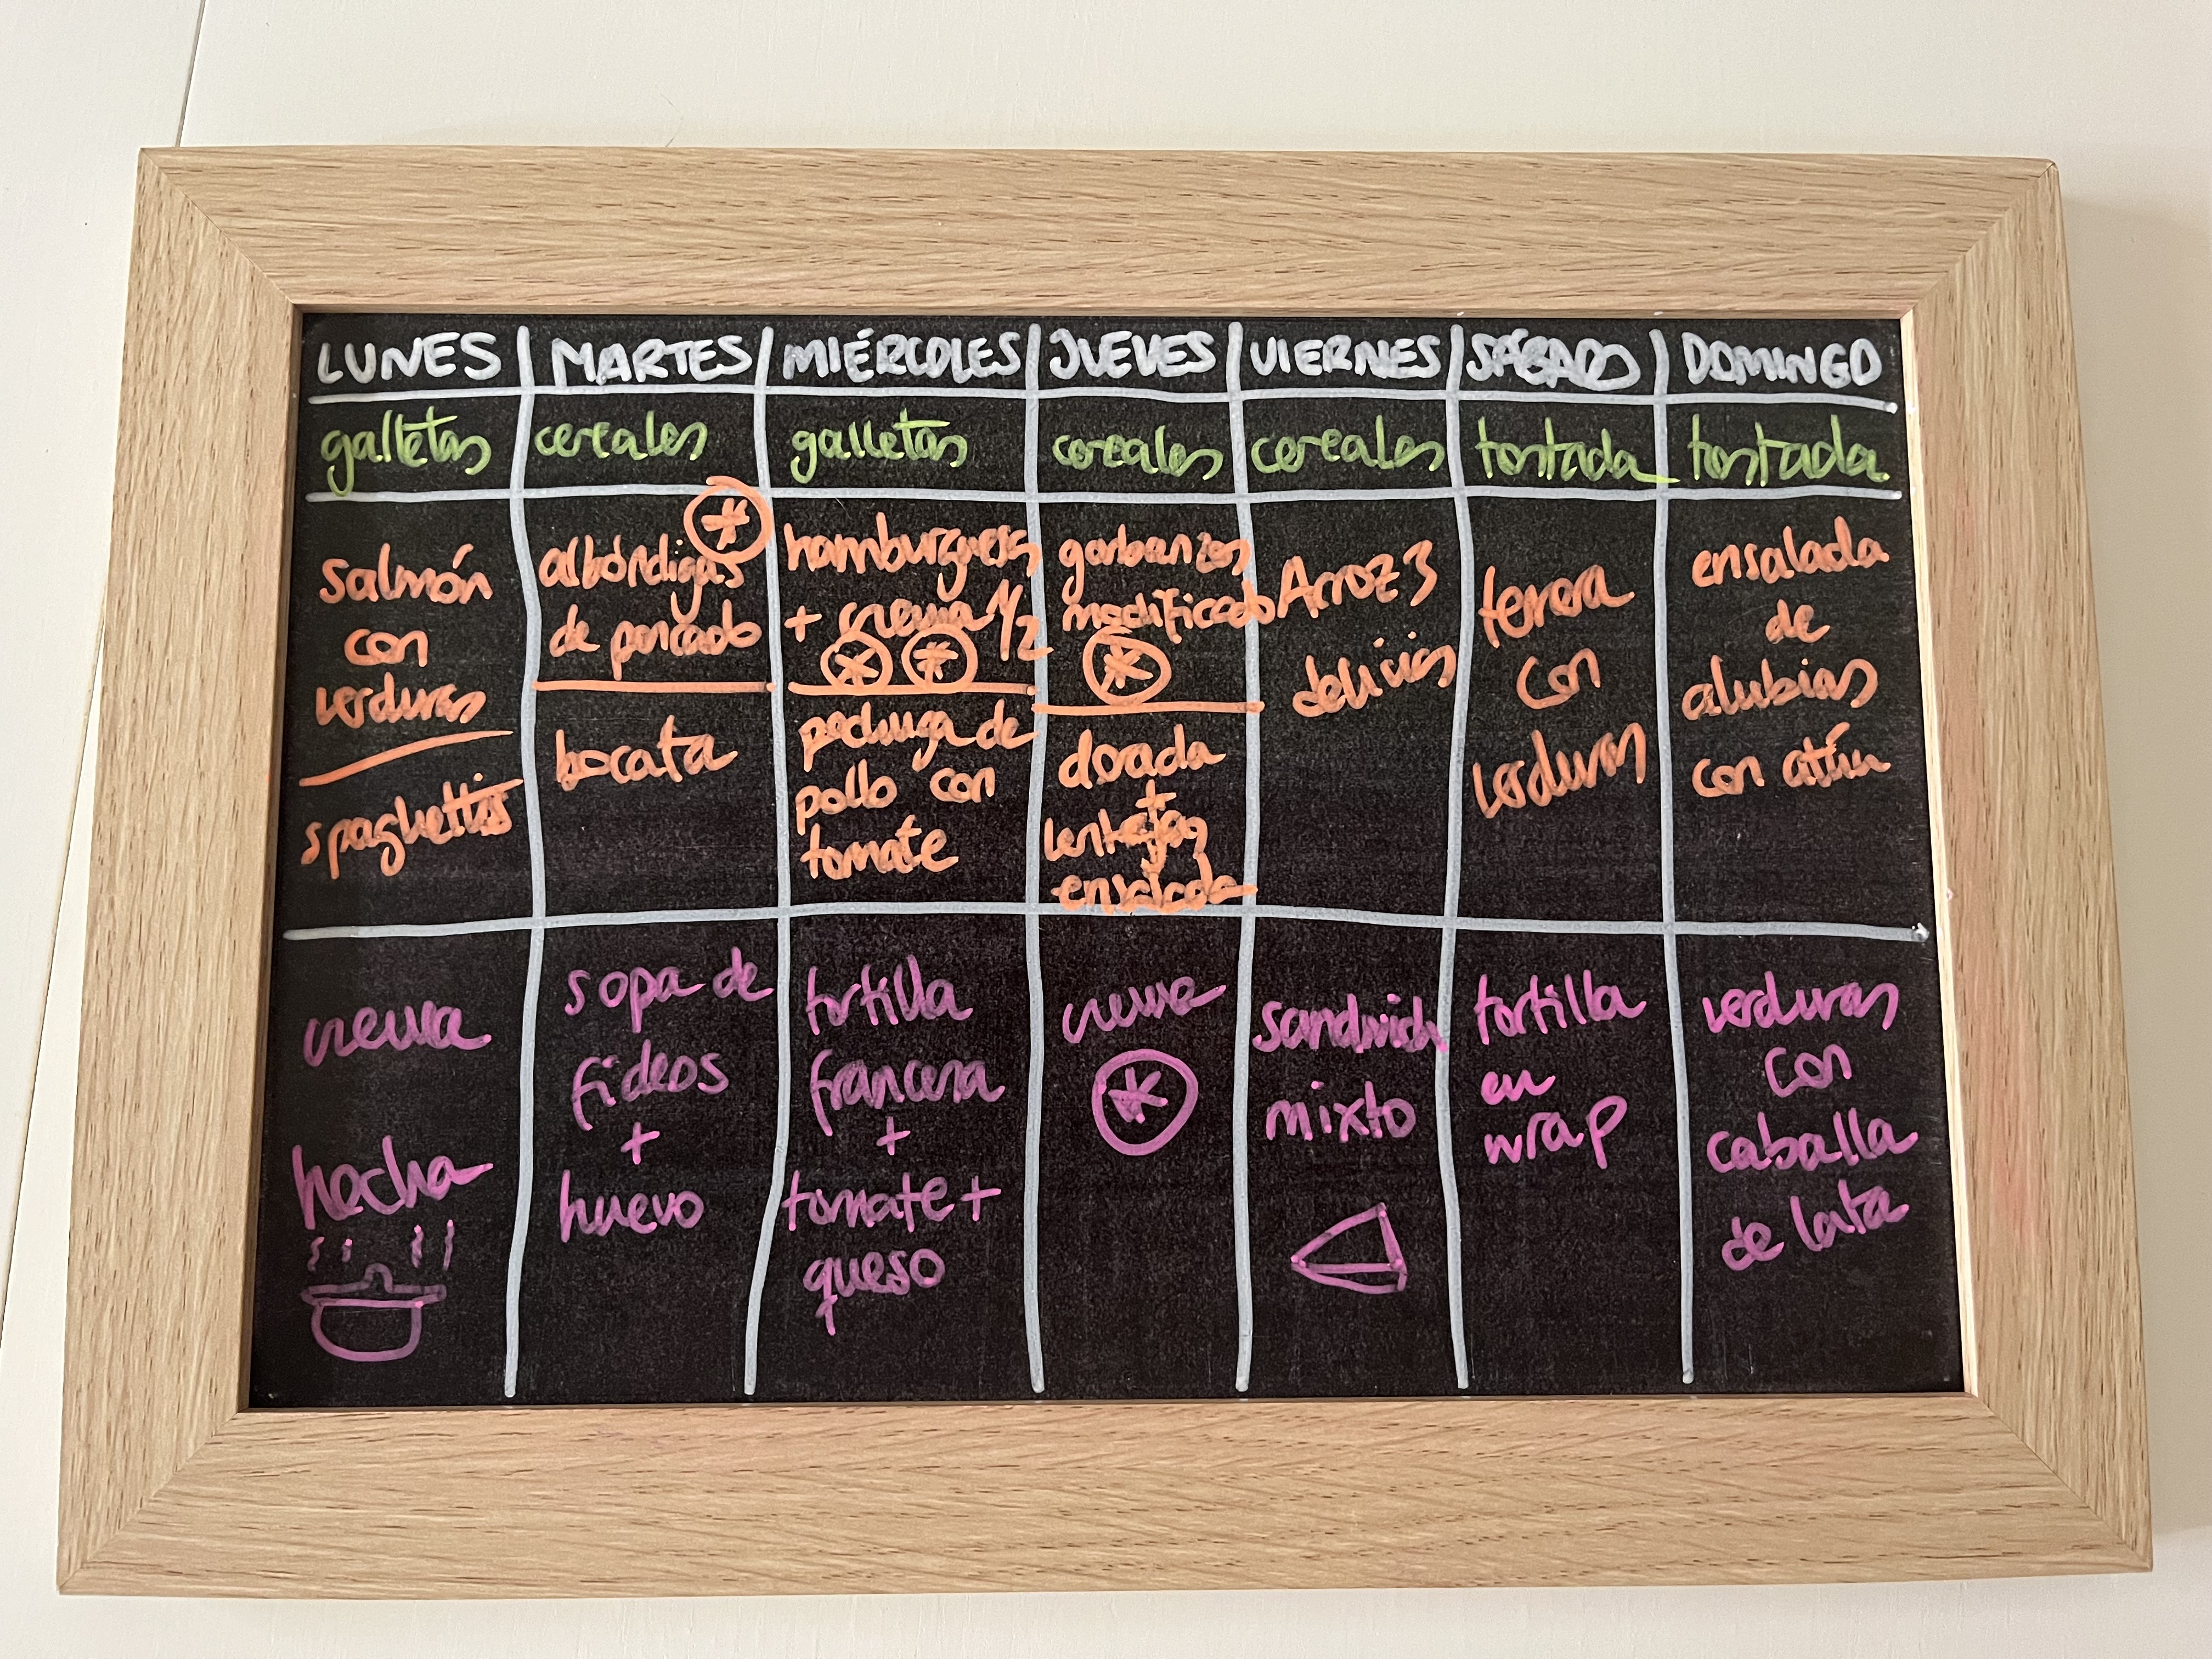 LUNES MARTES MIÉRCOLES JUEVES VIERNES SÁBADO DOMINGO
galletas cereales galletas cereales cereales tostada tostada
salmón
con
verduras
spaghettis
albóndigas
de pescado
bocata
hamburguesas
+ crema 1/2
pechuga de
pollo con
tomate
garbanzos
modificado
dorada
+
lentejas
ensalada
Arroz 3
delicias
ternera
con
verduras
ensalada
de
alubias
con atún
crema
hecha
sopa de
fideos
+
huevo
tortilla
francesa
+
tomate +
queso
crema
sandwich
mixto
tortilla
en
wrap
verduras
con
caballa
de lata